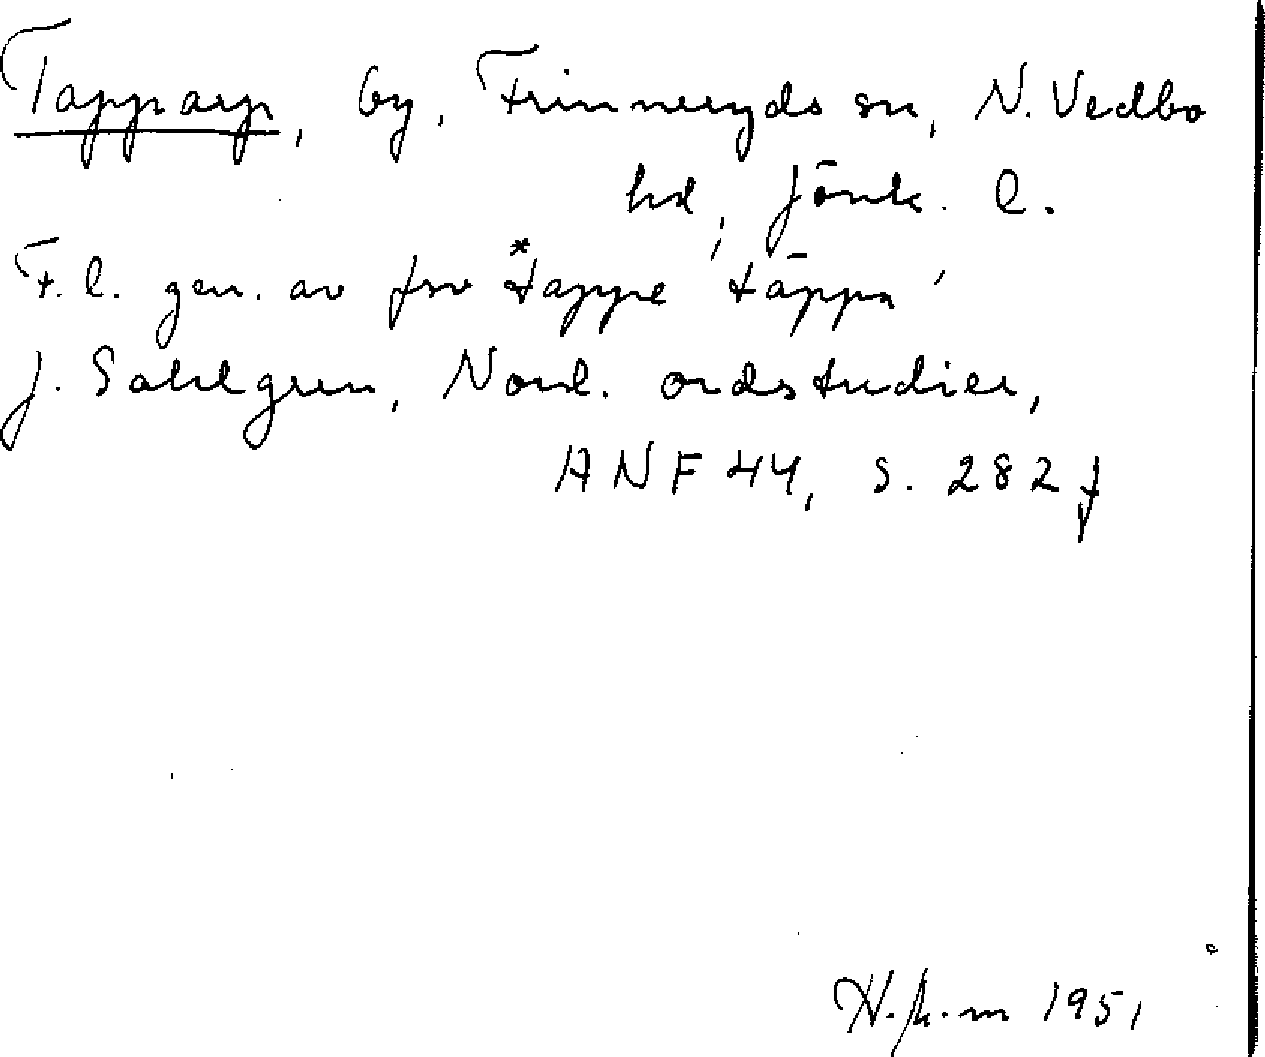 Tapparp, by, Frinneryds sn, N. Vedbo
hd, Jönk. l.
F.l. gen. av fsv *tappe 'täppa'
J. Sahlgren, Nord. ordstudier,
ANF 44, s. 282 f
1951